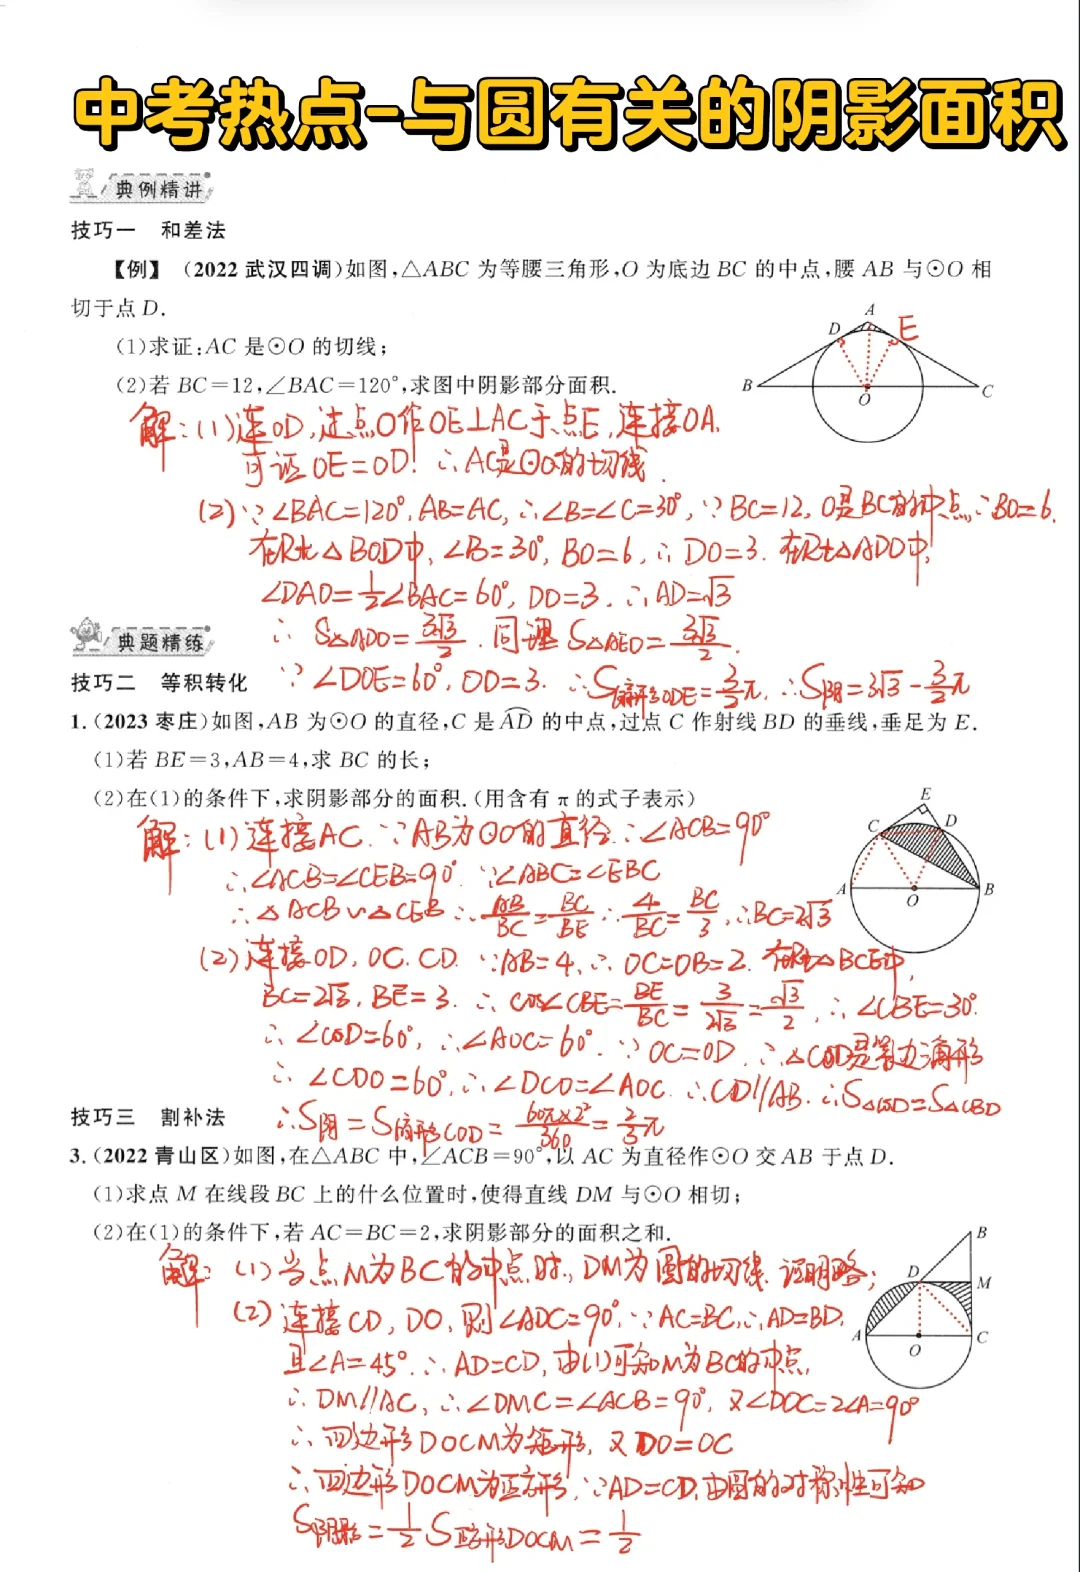 中考热点-与圆有关的阴影面积
典例精讲
技巧一 和差法
【例】 (2022 武汉四调)如图,△ABC 为等腰三角形,O 为底边 BC 的中点,腰 AB 与⊙O 相
切于点 D.
(1)求证:AC 是⊙O 的切线;
(2)若 BC=12,∠BAC=120°,求图中阴影部分面积.
A
D
E
B
O
C
解:(1)连OD,过点O作OE⊥AC于点E,连接OA.
可证OE=OD! ∴AC是⊙O的切线.
(2)∵∠BAC=120°,AB=AC,∴∠B=∠C=30°,∵BC=12,O是BC的中点,∴BO=6.
在Rt△BOD中,∠B=30°,BO=6,∴DO=3.在Rt△ADO中,
∠DAO=1/2∠BAC=60°,DO=3.∴AD=√3
∴S△ADO=3√3/2.同理S△AEO=3√3/2.
∵∠DOE=60°,OD=3.∴S扇形ODE=3/2π,∴S阴=3√3-3/2π
典题精练
技巧二 等积转化
1.(2023 枣庄)如图,AB 为⊙O 的直径,C 是 AD 的中点,过点 C 作射线 BD 的垂线,垂足为 E.
(1)若 BE=3,AB=4,求 BC 的长;
(2)在(1)的条件下,求阴影部分的面积.(用含有 π 的式子表示)
E
C
D
A
O
B
解:(1)连接AC.∵AB为⊙O的直径∴∠ACB=90°
∴∠ACB=∠CEB=90°∵∠ABC=∠EBC
∴△ACB∽△CEB∴AB/BC=BC/BE∴4/BC=BC/3,∴BC=2√3
(2)连接OD,OC.CD.∵AB=4,∴OC=OB=2.在Rt△BCE中,
BC=2√3,BE=3.∴cos∠CBE=BE/BC=3/2√3=√3/2,∴∠CBE=30°.
∴∠COD=60°,∴∠AOC=60°.∵OC=OD.∴△COD是等边三角形
∴∠CDO=60°,∴∠DCO=∠AOC.∴CD//AB.∴S△COD=S△CBD
∴S阴=S扇形COD=60π×2²/360=2/3π
技巧三 割补法
3.(2022 青山区)如图,在△ABC 中,∠ACB=90°,以 AC 为直径作⊙O 交 AB 于点 D.
(1)求点 M 在线段 BC 上的什么位置时,使得直线 DM 与⊙O 相切;
(2)在(1)的条件下,若 AC=BC=2,求阴影部分的面积之和.
B
D
M
A
O
C
解:(1)当点M为BC的中点时,DM为圆的切线.证明略;
(2)连接CD,DO,则∠ADC=90°,∵AC=BC,∴AD=BD,
且∠A=45°∴AD=CD,由(1)可知M为BC的中点,
∴DM//AC,∴∠DMC=∠ACB=90°,又∠DOC=2∠A=90°
∴四边形DOCM为矩形,又DO=OC
∴四边形DOCM为正方形,∵AD=CD,由圆的对称性可知
S阴影=1/2S正方形DOCM=1/2